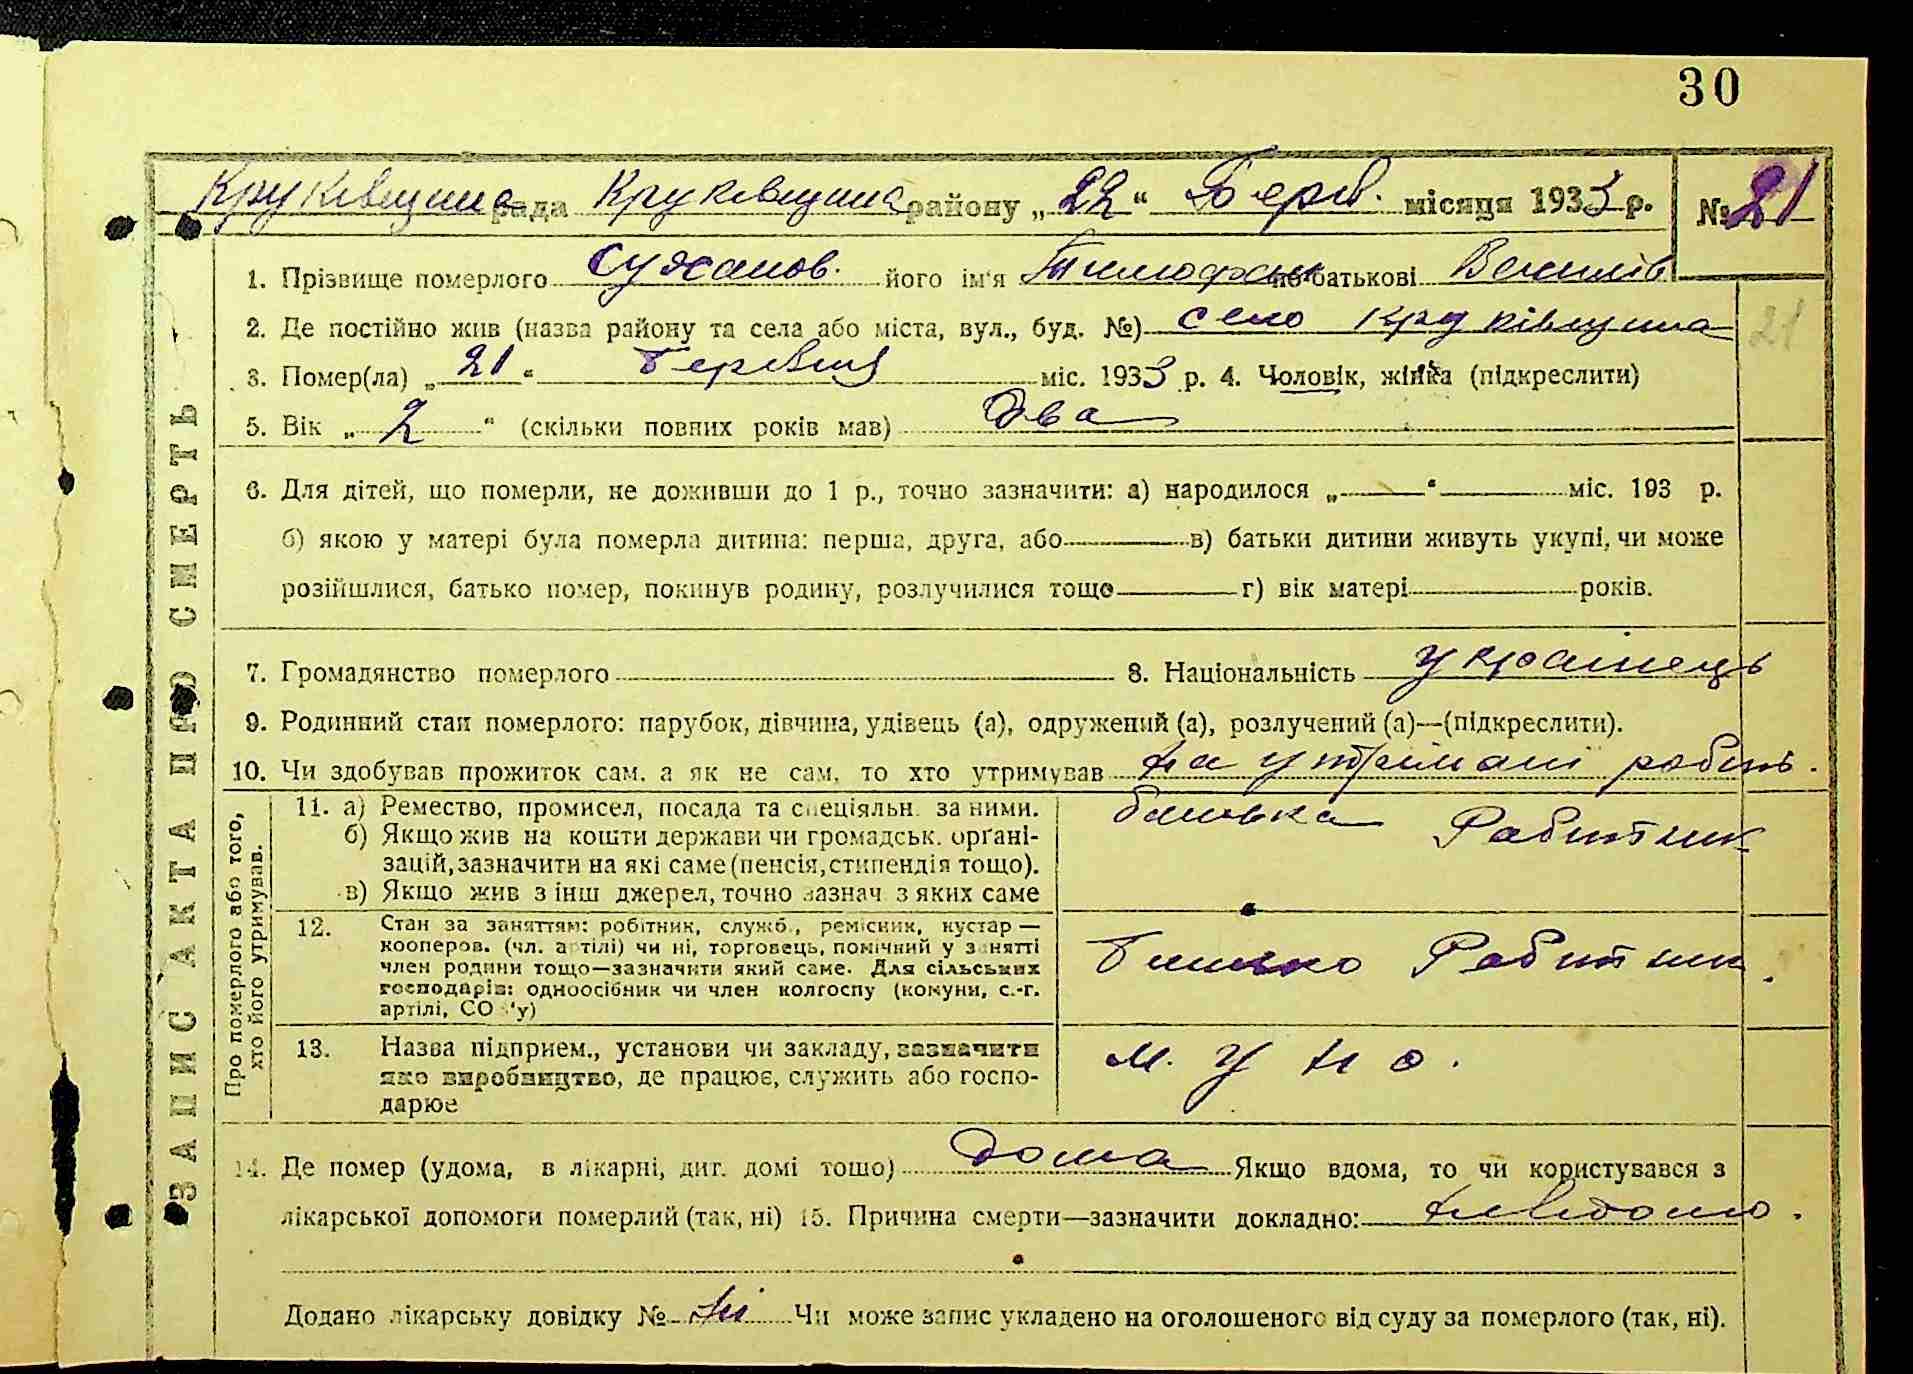 30
Круківщина рада Круківщина району „22" Берез. місяця 1933 р. № 21
1. Прізвище померлого Суханов. його ім'я Тимофій по батькові
2. Де постійно жив (назва району та села або міста, вул., буд. №) село Круківщина
21
3. Помер(ла) „21" березня міс. 1933 р. 4. Чоловік, жінка (підкреслити)
5. Вік „2" (скільки повних років мав) два
6. Для дітей, що померли, не доживши до 1 р., точно зазначити: а) народилося „ " міс. 193 р.
б) якою у матері була померла дитина: перша, друга, або в) батьки дитини живуть укупі, чи може
розійшлися, батько помер, покинув родину, розлучилися тощо г) вік матері років.
7. Громадянство померлого 8. Національність українець
9. Родинний стан померлого: парубок, дівчина, удівець (а), одружений (а), розлучений (а)—(підкреслити).
10. Чи здобував прожиток сам, а як не сам, то хто утримував на утримані
ЗАПИС АКТА ПРО СМЕРТЬ
Про померлого або того,
хто його утримував.
11. а) Ремество, промисел, посада та спеціяльн. за ними.
б) Якщо жив на кошти держави чи громадськ. орґані-
зацій, зазначити на які саме (пенсія, стипендія тощо).
в) Якщо жив з інш джерел, точно зазнач з яких саме
батька Работник
12. Стан за заняттям: робітник, служб., ремісник, кустар —
кооперов. (чл. артілі) чи ні, торговець, помічний у занятті
член родини тощо—зазначити який саме. Для сільських
господарів: одноосібник чи член колгоспу (комуни, с.-г.
артілі, СОЗ'у)
Батько Работник
13. Назва підприєм., установи чи закладу, зазначити
яко виробництво, де працює, служить або госпо-
дарює
М. У Н О.
14. Де помер (удома, в лікарні, дит. домі тощо) дома Якщо вдома, то чи користувався з
лікарської допомоги померлий (так, ні) 15. Причина смерти—зазначити докладно: невідомо.
Додано лікарську довідку № ні Чи може запис укладено на оголошеного від суду за померлого (так, ні).